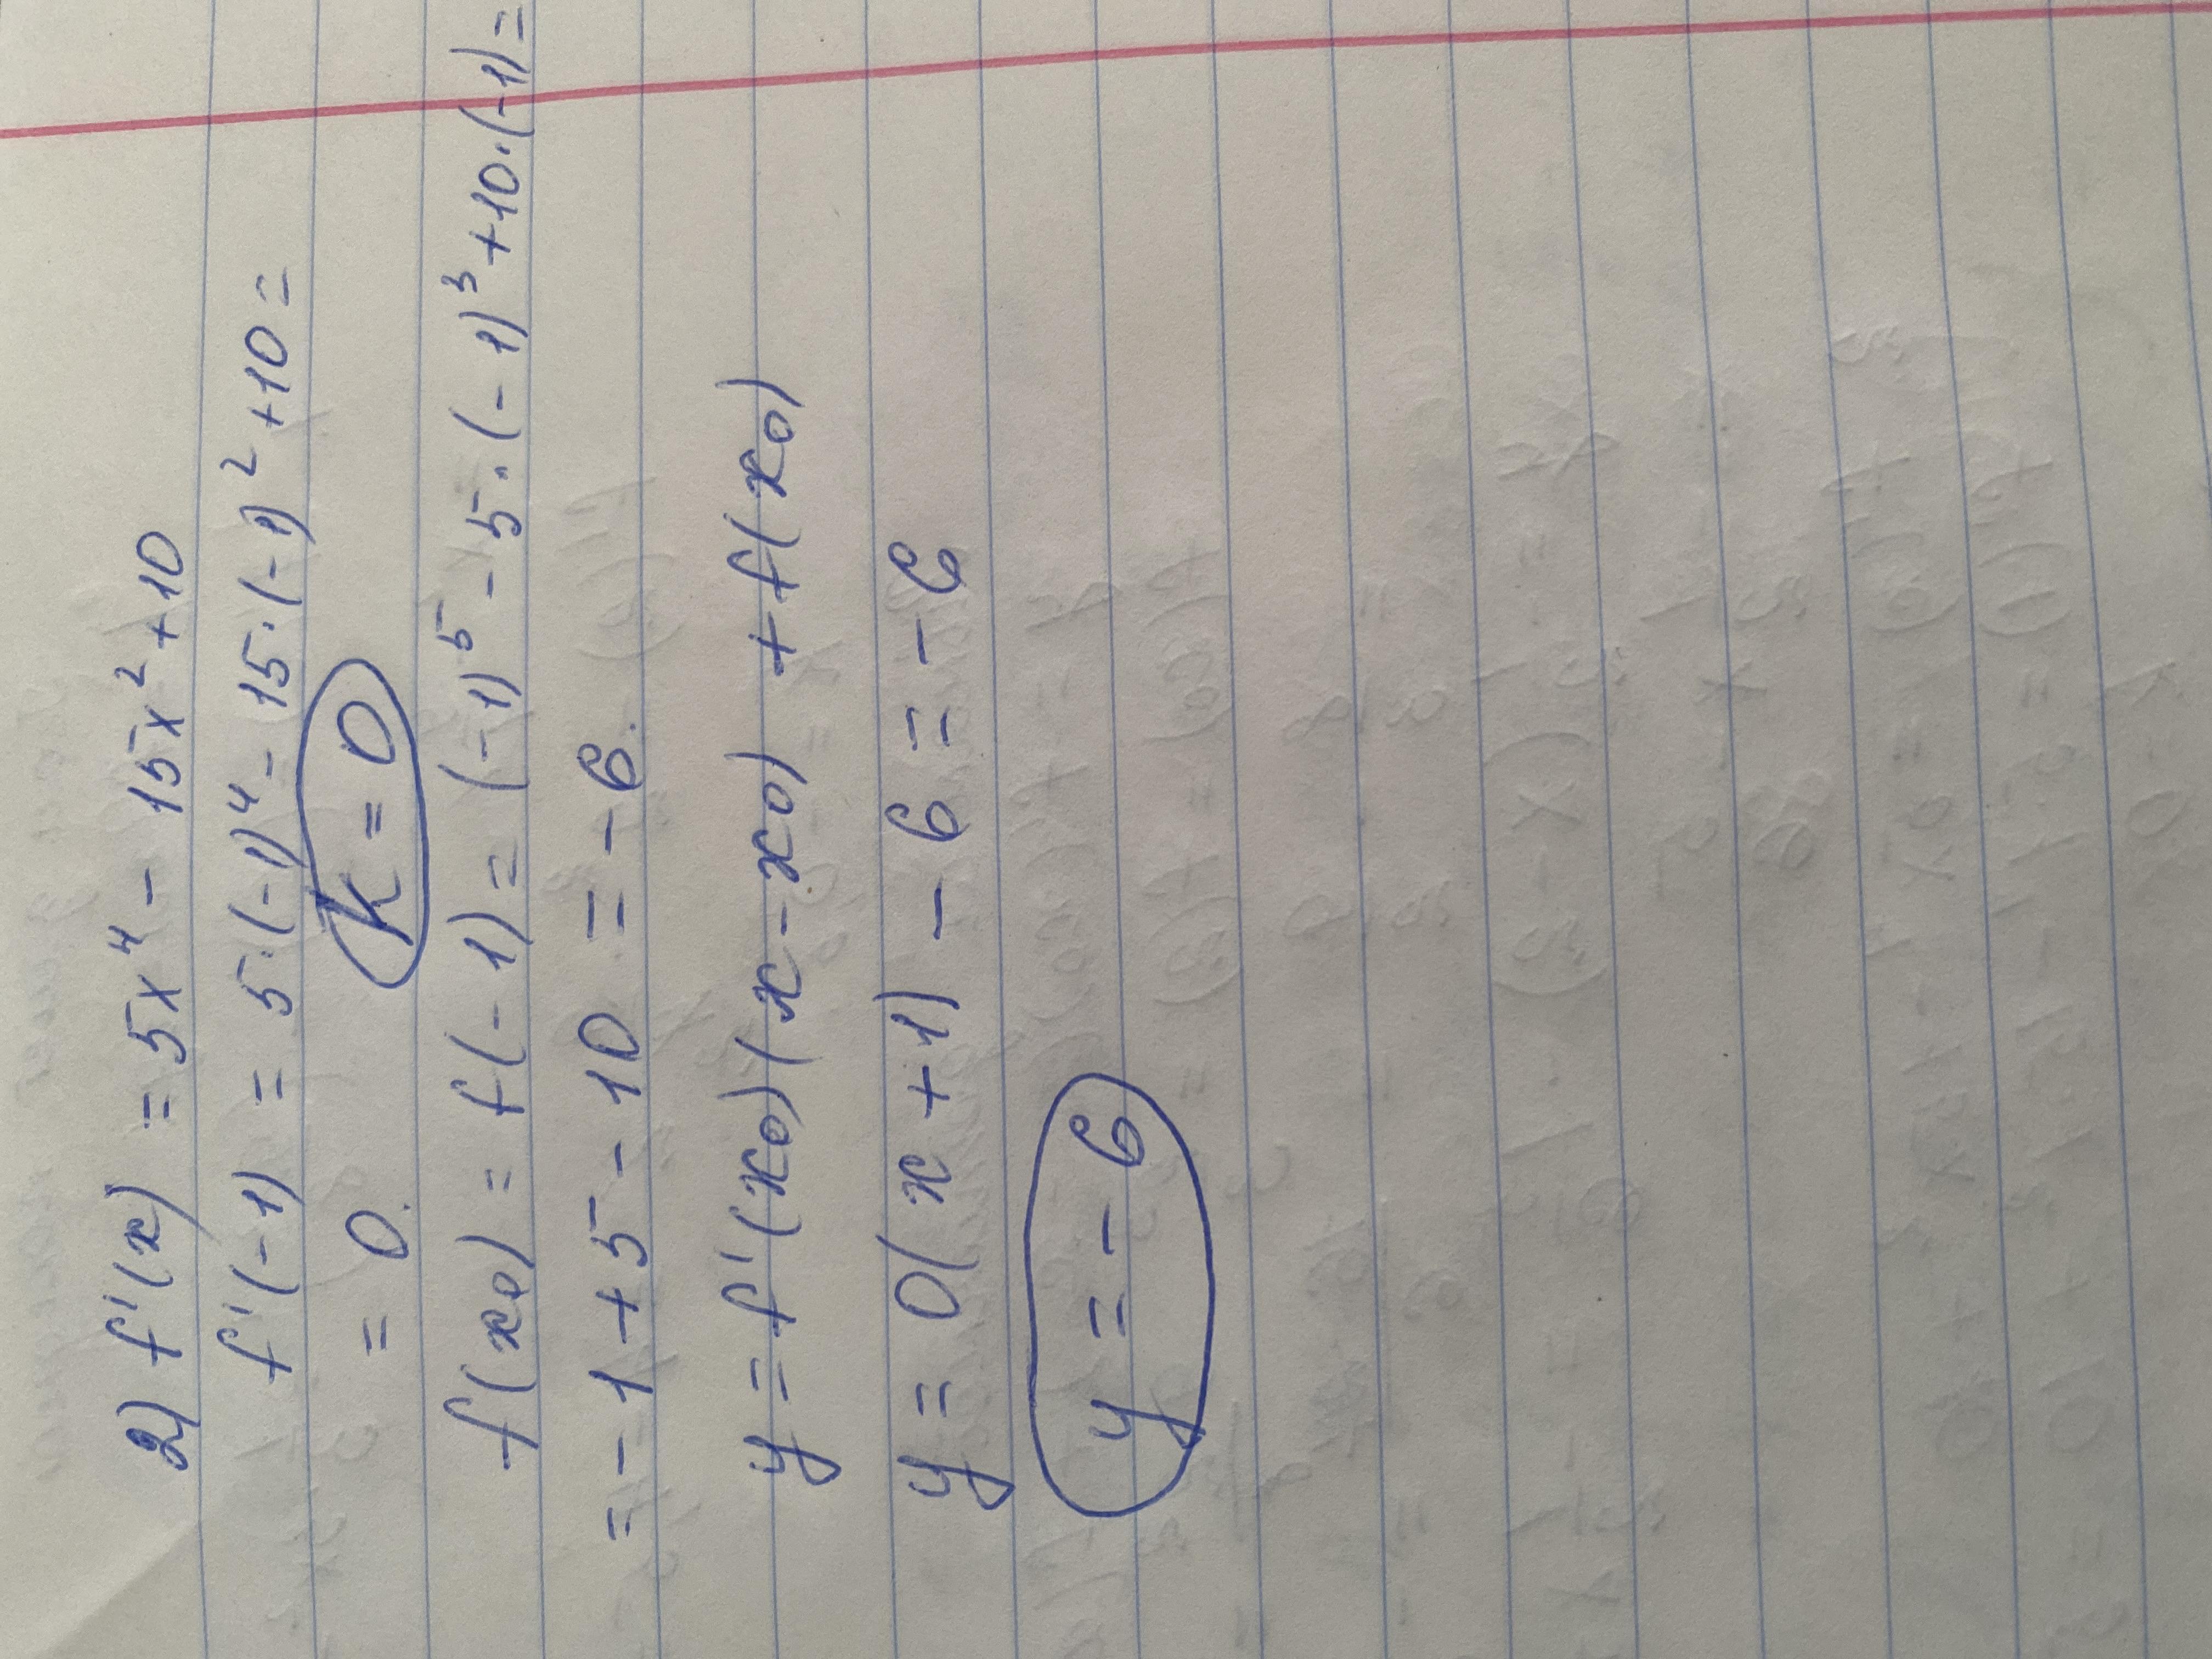 2) f'(x) = 5x⁴ - 15x² + 10
f'(-1) = 5·(-1)⁴ - 15·(-1)² + 10 =
= 0. K = 0
f(x₀) = f(-1) = (-1)⁵ - 5·(-1)³ + 10·(-1) =
= -1 + 5 - 10 = -6.
y = f'(x₀)(x - x₀) + f(x₀)
y = 0(x + 1) - 6 = -6
y = -6